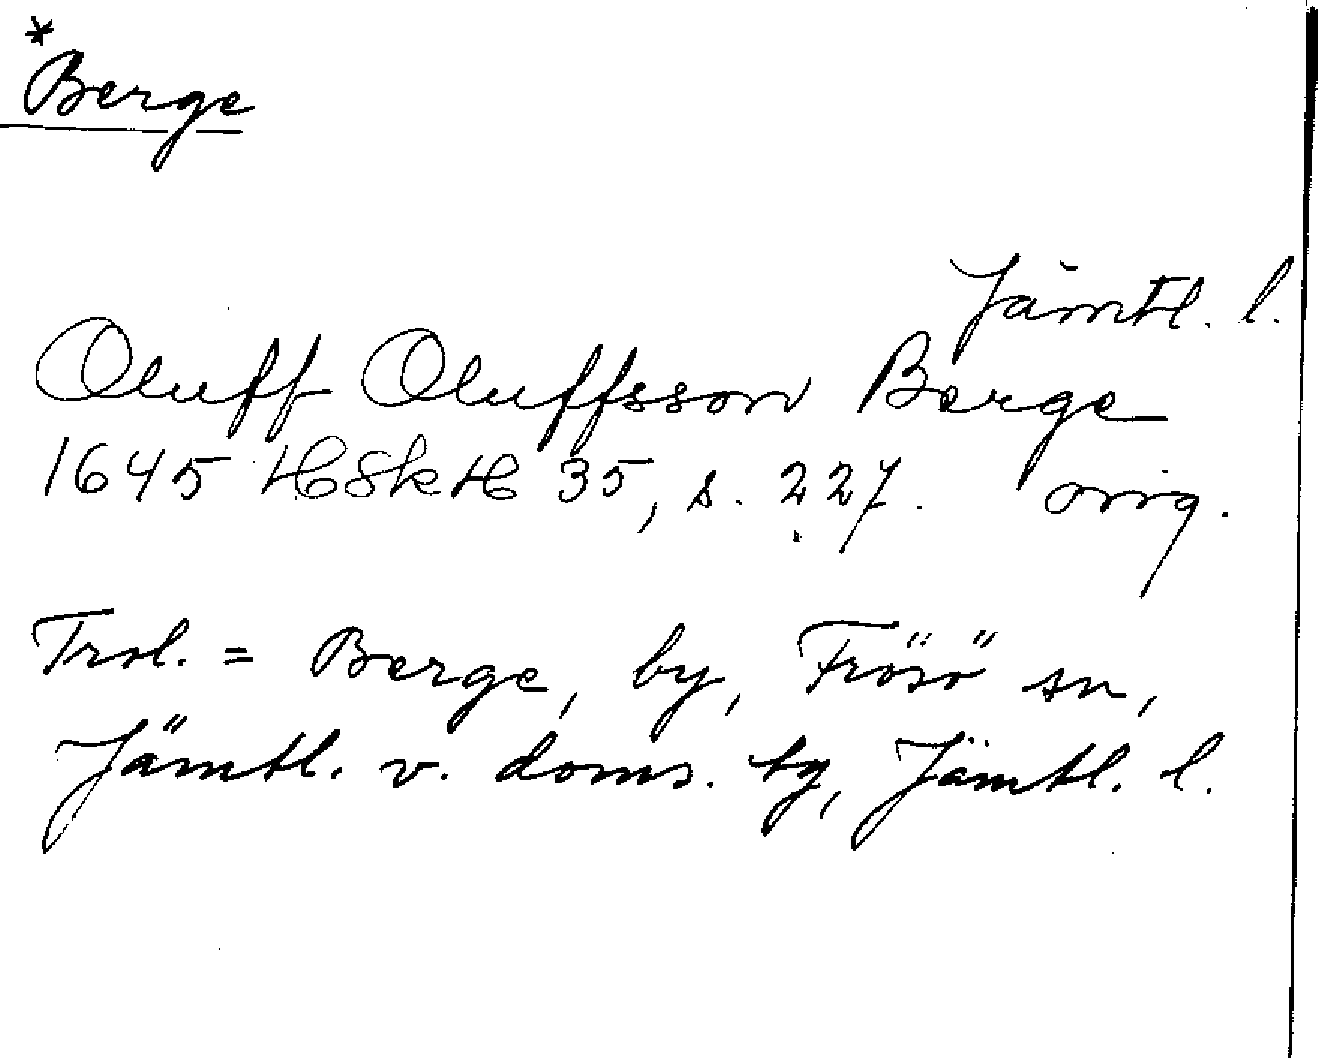 *
Berge
Jämtl. l.
Oluff Oluffsson Berge
1645 HSkH 35, s. 227. orig.
Trol. = Berge, by, Frösö sn,
Jämtl. v. doms. tg, Jämtl. l.